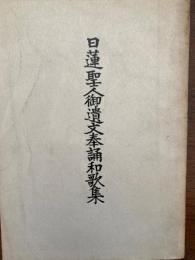 日蓮聖人御遺文奉誦和歌集